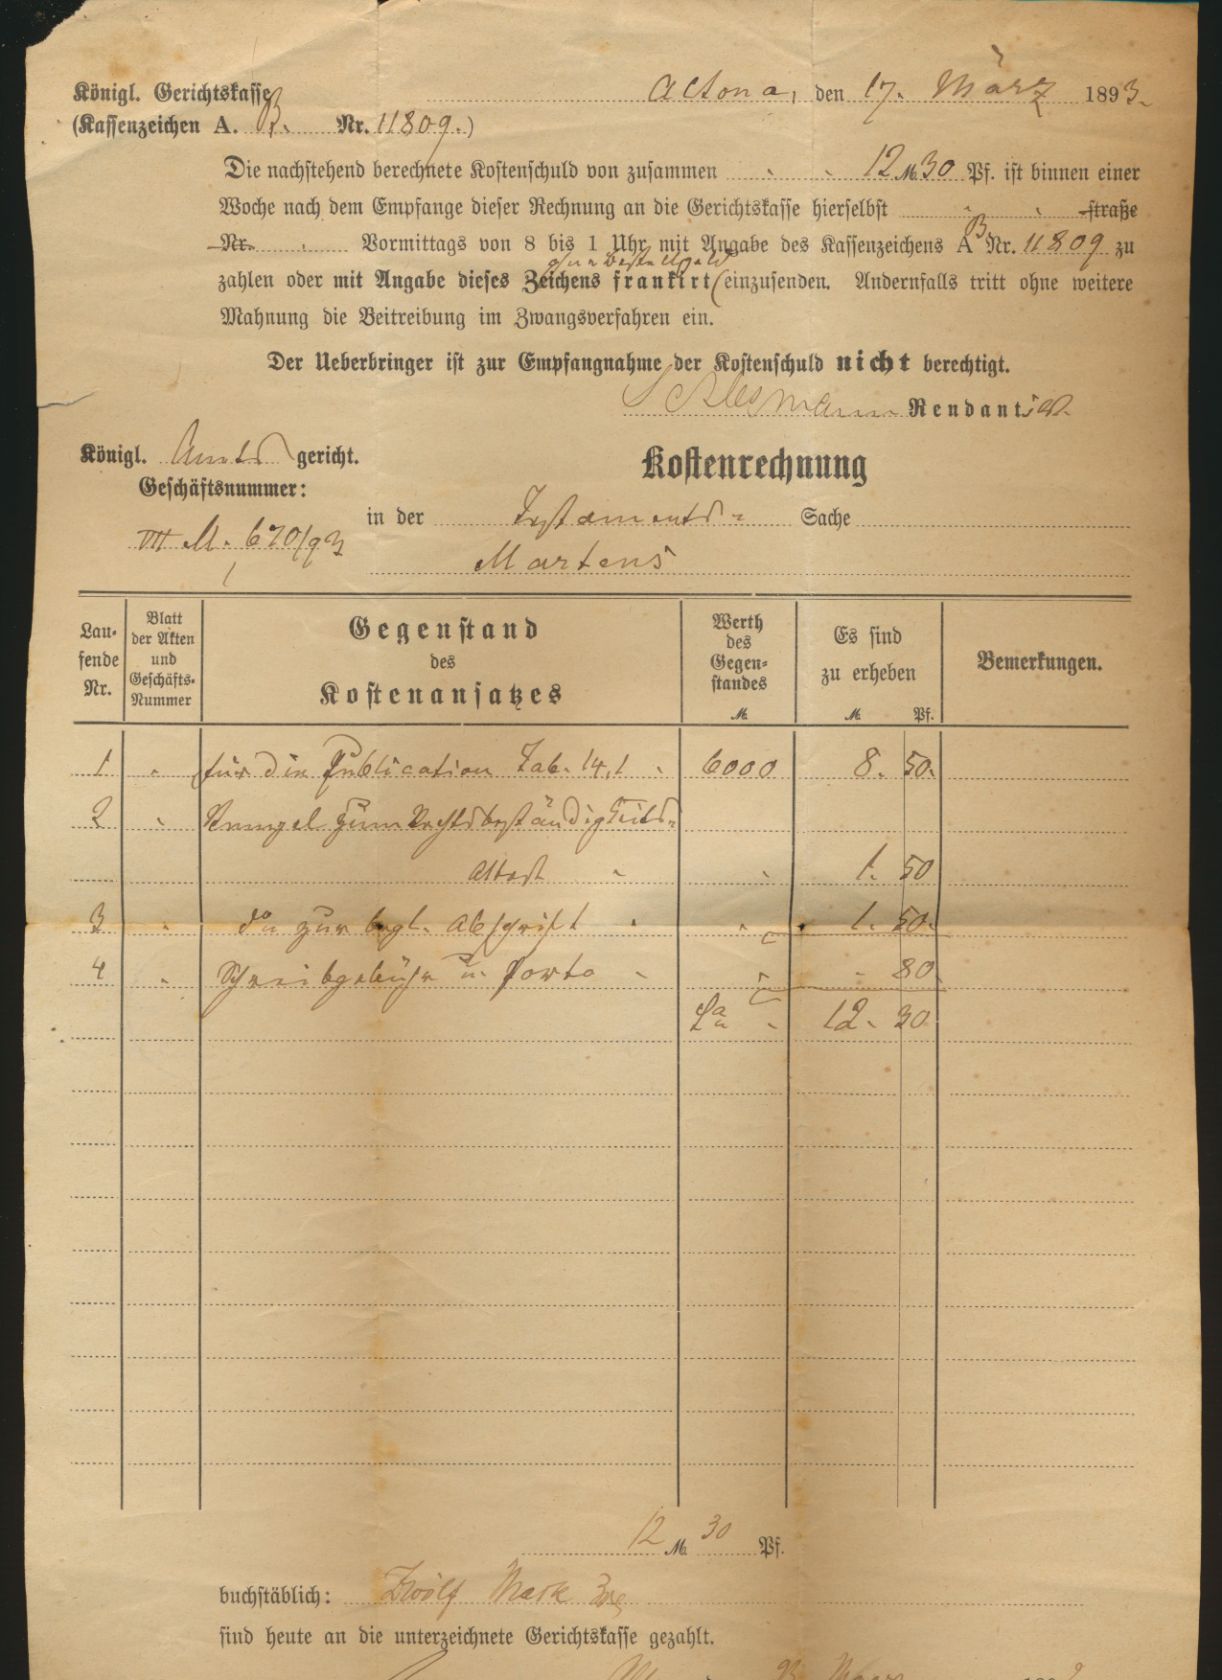 Königl. Gerichtskasse Altona, den 17. März 1893.
(Kassenzeichen A. B. Nr. 11809.)
Die nachstehend berechnete Kostenschuld von zusammen 12 M 30 Pf. ist binnen einer
Woche nach dem Empfange dieser Rechnung an die Gerichtskasse hierselbst straße
Nr. Vormittags von 8 bis 1 Uhr mit Angabe des Kassenzeichens A B Nr. 11809 zu
und Bestellgeld
zahlen oder mit Angabe dieses Zeichens frankirt (einzusenden. Andernfalls tritt ohne weitere
Mahnung die Beitreibung im Zwangsverfahren ein.
Der Ueberbringer ist zur Empfangnahme der Kostenschuld nicht berechtigt.
Rendant
Königl. Amts gericht.
Kostenrechnung
Geschäftsnummer:
in der Testaments- Sache
VII M. 670/93
Martens
Laufende Nr.
Blatt der Akten und Geschäfts-Nummer
Gegenstand des Kostenansatzes
Werth des Gegen-standes M.
Es sind zu erheben M. Pf.
Bemerkungen.
1 für die Publication Tab. 14,1 6000 8. 50.
2 Stempel zum Rechtsbeständigkeits-
Attest 1. 50
3 do zur begl. Abschrift 1. 50.
4 Schreibgebühr u. Porto 80
Sa 12. 30
12 M. 30 Pf.
buchstäblich: Zwölf Mark 30
sind heute an die unterzeichnete Gerichtskasse gezahlt.